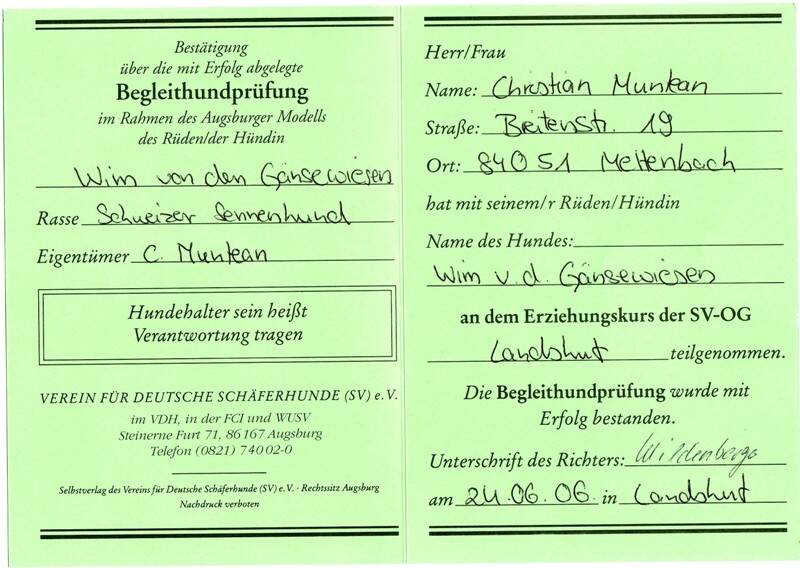 Bestätigung
über die mit Erfolg abgelegte
Begleithundprüfung
im Rahmen des Augsburger Modells
des Rüden/der Hündin
Wim von den Gänsewiesen
Rasse Schweizer Sennenhund
Eigentümer C. Munkan
Hundehalter sein heißt
Verantwortung tragen
VEREIN FÜR DEUTSCHE SCHÄFERHUNDE (SV) e.V.
im VDH, in der FCI und WUSV
Steinerne Furt 71, 86167 Augsburg
Telefon (0821) 74002-0
Selbstverlag des Vereins für Deutsche Schäferhunde (SV) e.V. · Rechtssitz Augsburg
Nachdruck verboten
Herr/Frau
Name: Christian Munkan
Straße: Breitenstr. 19
Ort: 84051 Mettenbach
hat mit seinem/r Rüden/Hündin
Name des Hundes:
Wim v.d. Gänsewiesen
an dem Erziehungskurs der SV-OG
Landshut teilgenommen.
Die Begleithundprüfung wurde mit
Erfolg bestanden.
Unterschrift des Richters:
am 24.06.06. in Landshut